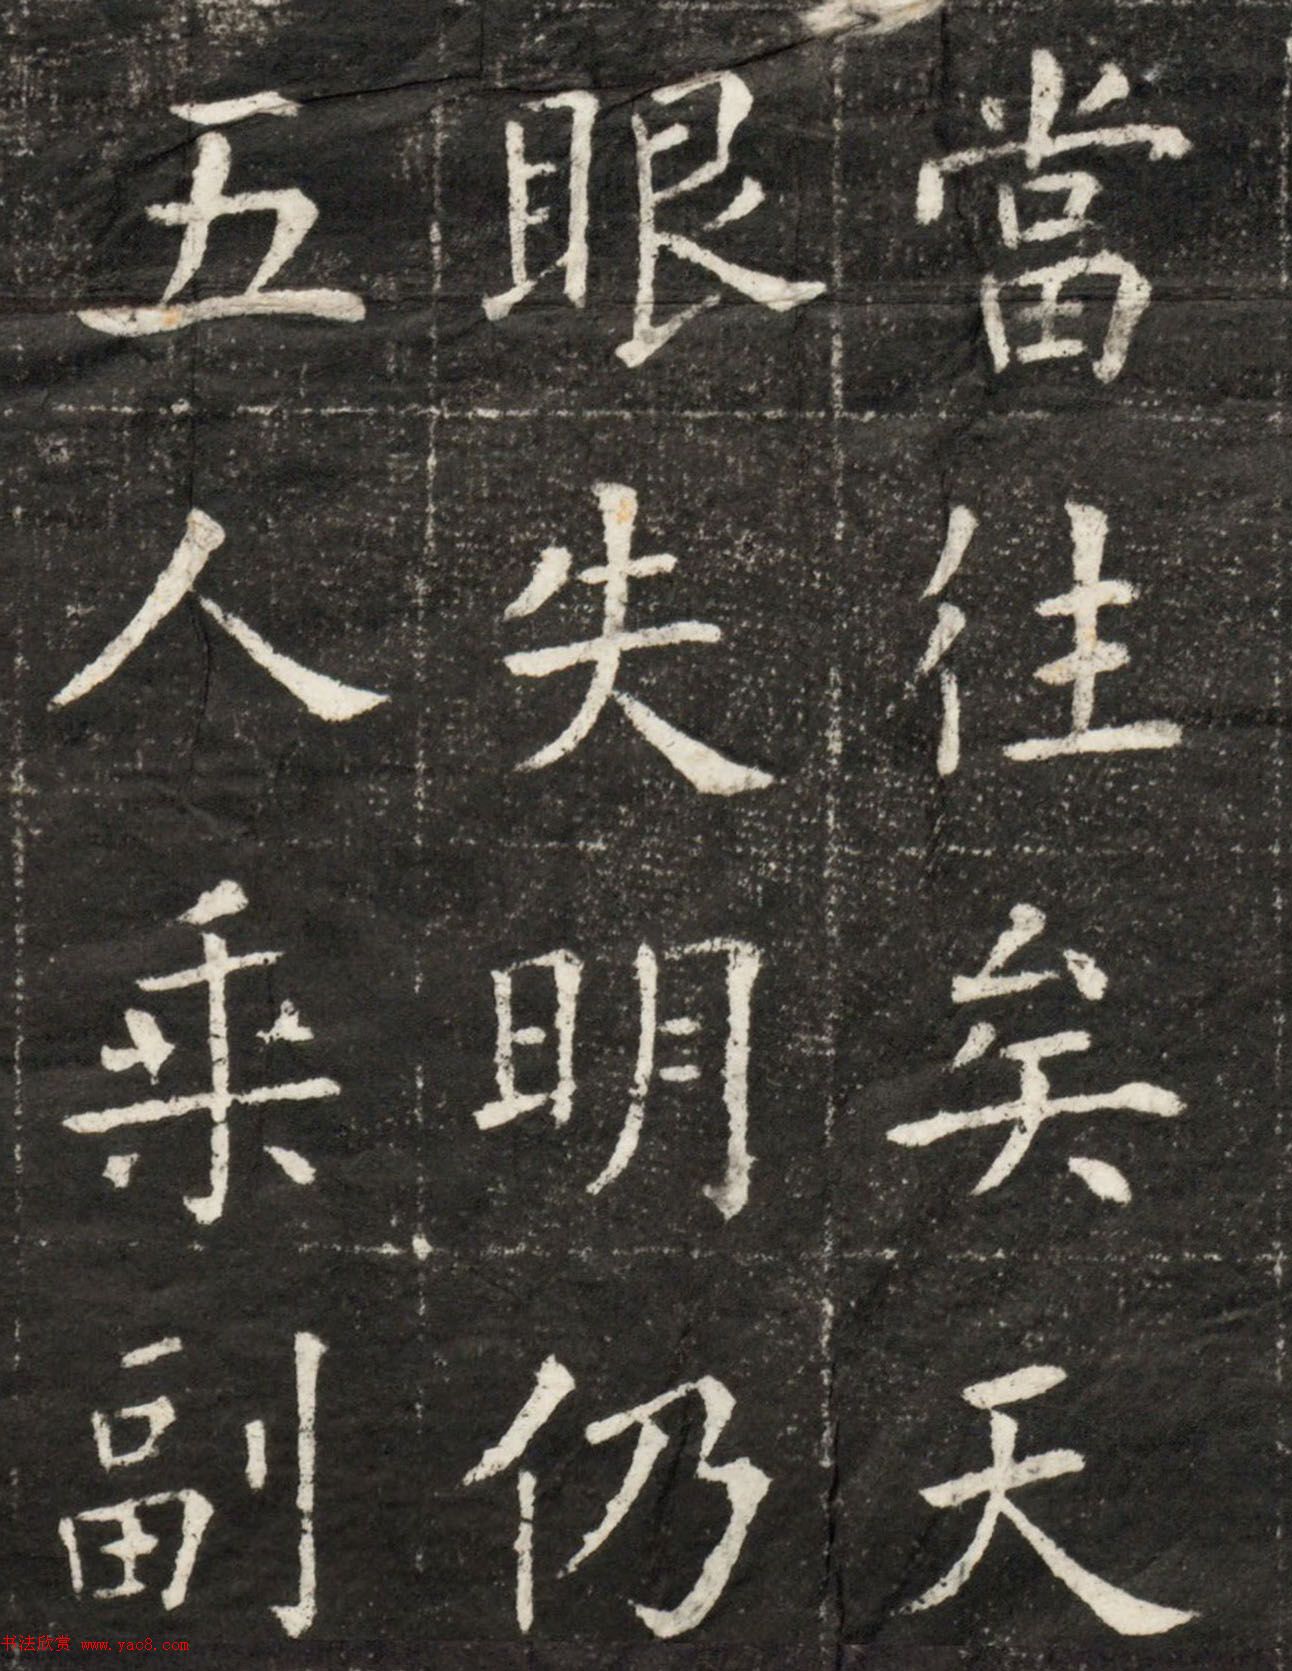 當往矣天
眼失明仍
五人乘副
书法欣赏 www.yac8.com